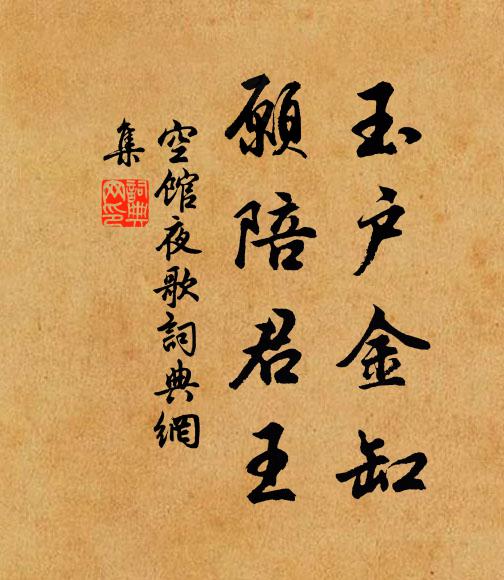 玉户金缸
願陪君王
空館夜歌詞典網
集
詞典网印